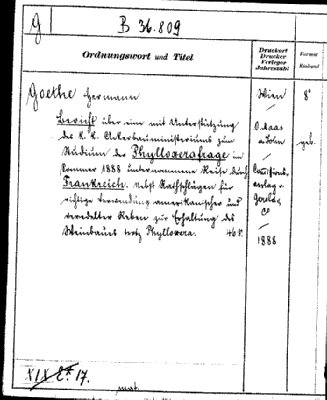 g
B 36.809
Ordnungswort und Titel
Druckort
Drucker
Verleger
Jahreszahl
Format
Einband
Goethe Hermann
Bericht über eine mit Unterstützung
des K. K. Ackerbauministeriums zum
Studium der Phylloxerafrage im
Sommer 1888 unternommene Reise durch
Frankreich. nebst Rathschlägen für
richtige Verwendung amerikanischer und
veredelter Reben zur Erhaltung des
Weinbaues trotz Phylloxera. 46 S.
Wien
/
O. Maas
u. Sohn
/
Gerold &
Co
/
1888
8°
geb.
XIX E* 17.